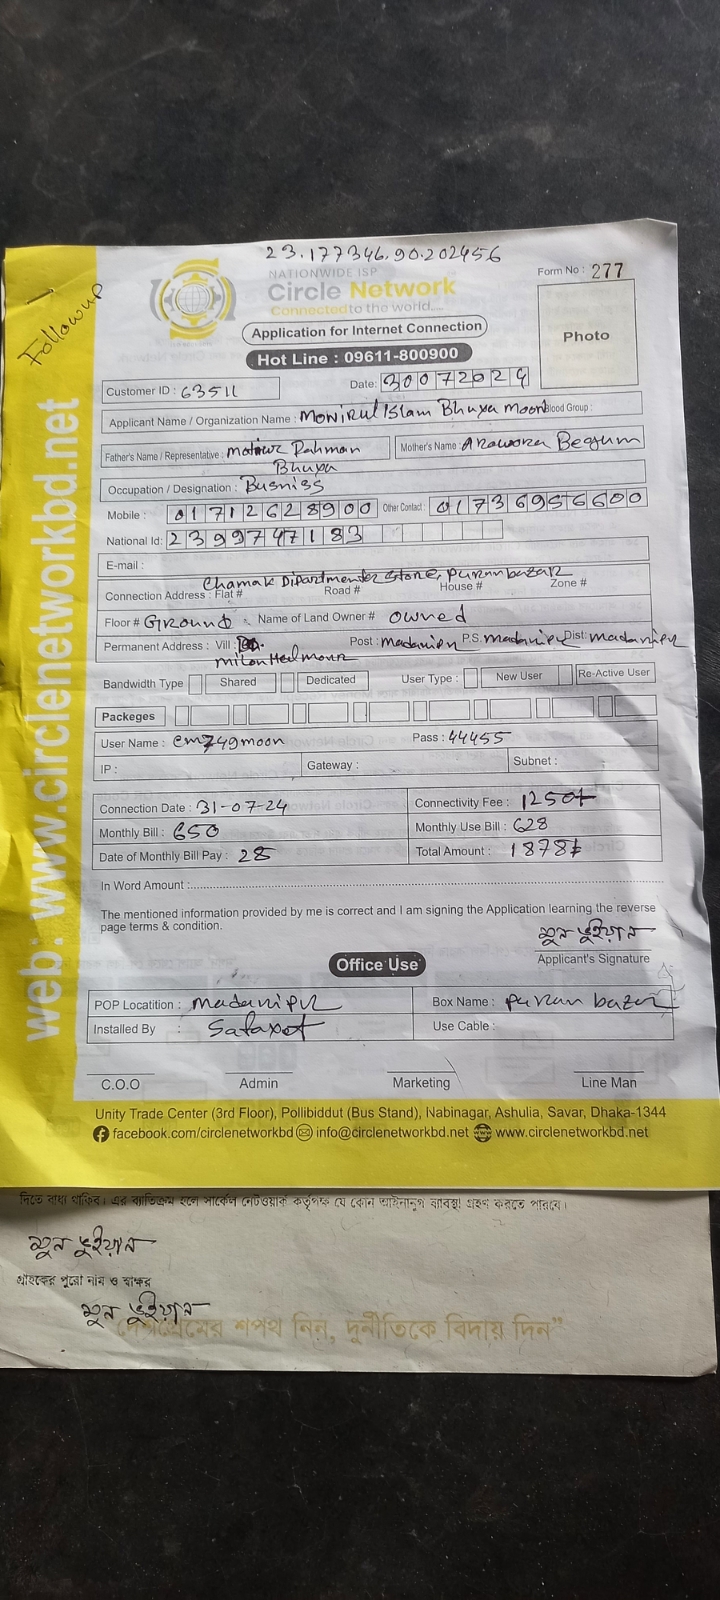 23.177346.90.202456
Followup
NATIONWIDE ISP
Circle Network
Connected to the world....
Form No : 277
Application for Internet Connection
Photo
Hot Line : 09611-800900
Customer ID : 63511
Date: 30072024
Applicant Name / Organization Name : Monirul Islam Bhuya Moon Blood Group :
Father's Name / Representative : Rahman Bhuya
Mother's Name : Begum
Occupation / Designation : Busniss
Mobile : 01712628900 Other Contact : 01736956600
National Id: 2399747183
E-mail :
Chamak Dipartmentar Store, Puran bazar
Connection Address : Flat # Road # House # Zone #
Floor # Ground Name of Land Owner # owned
Permanent Address : Vill : Post : madaripur P.S. madaripur Dist: madaripur
Bandwidth Type Shared Dedicated User Type : New User Re-Active User
Packeges
User Name : cm749moon Pass : 44455
IP : Gateway : Subnet :
Connection Date : 31-07-24 Connectivity Fee : 1250/-
Monthly Bill : 650 Monthly Use Bill : 628
Date of Monthly Bill Pay : 28 Total Amount : 1878/-
In Word Amount :
The mentioned information provided by me is correct and I am signing the Application learning the reverse
page terms & condition.
মুন ভুইয়ান
Applicant's Signature
Office Use
POP Locatition : madaripur Box Name : puran bazar
Installed By : Use Cable :
C.O.O Admin Marketing Line Man
Unity Trade Center (3rd Floor), Pollibiddut (Bus Stand), Nabinagar, Ashulia, Savar, Dhaka-1344
facebook.com/circlenetworkbd info@circlenetworkbd.net www.circlenetworkbd.net
web: www.circlenetworkbd.net
দিতে বাধ্য থাকিব। এর ব্যতিক্রম হলে সার্কেল নেটওয়ার্ক কর্তৃপক্ষ যে কোন আইনানুগ ব্যবস্থা গ্রহণ করতে পারবে।
মুন ভুইয়ান
গ্রাহকের পুরো নাম ও স্বাক্ষর
মুন ভুইয়ান
দেশপ্রেমের শপথ নিন, দুর্নীতিকে বিদায় দিন"